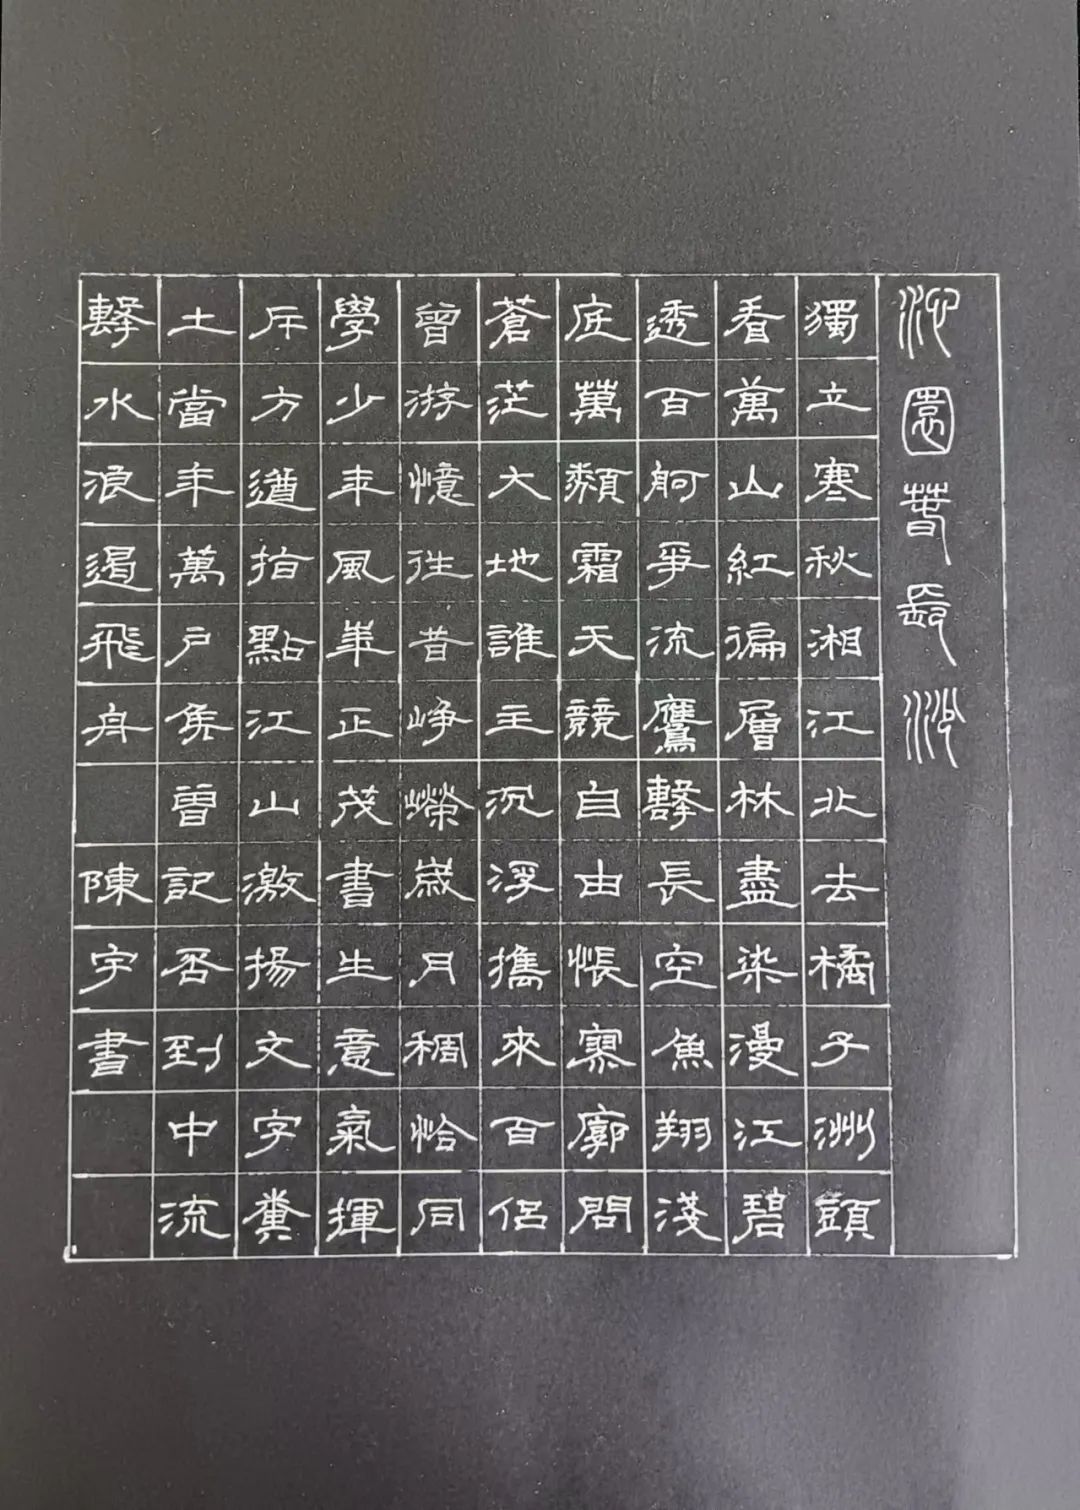 沁園春長沙
獨立寒秋湘江北去橘子洲頭
看萬山紅徧層林盡染漫江碧
透百舸爭流鷹擊長空魚翔淺
底萬類霜天競自由悵寥廓問
蒼茫大地誰主沉浮攜來百侶
曾游憶往昔崢嶸歲月稠恰同
學少年風華正茂書生意氣揮
斥方遒指點江山激揚文字糞
土當年萬戶矦曾記否到中流
擊水浪遏飛舟 陳宇書